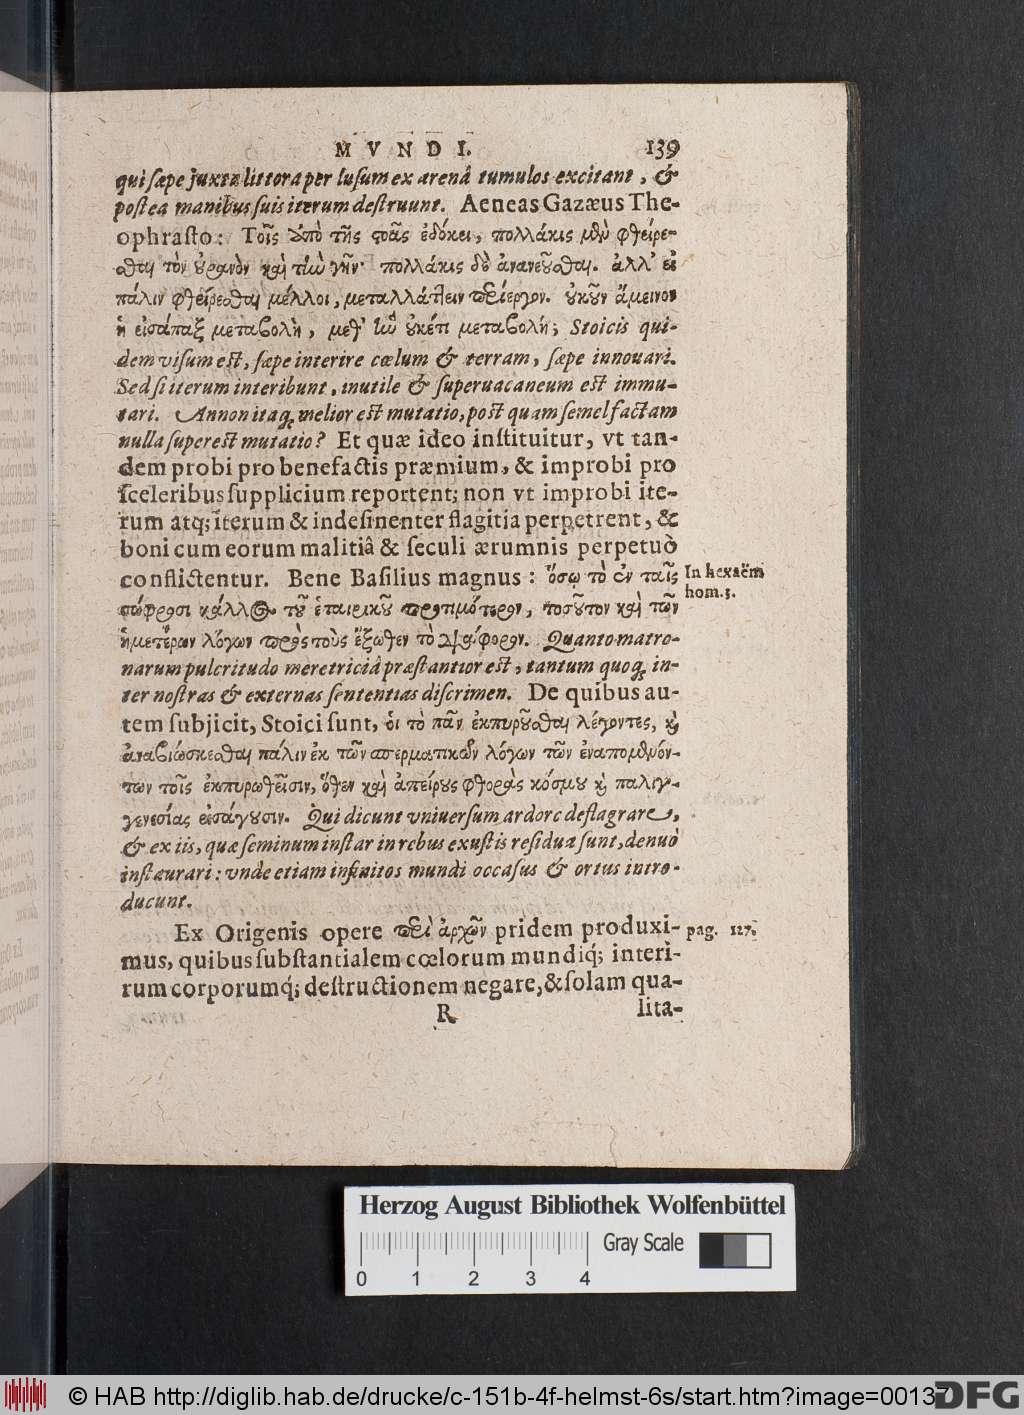 MVNDI. 139
qui sæpe juxta littora per lusum ex arenâ tumulos excitant, &
postea manibus suis iterum destruunt. Aeneas Gazæus The-
ophrasto: Τοῖς ἀπὸ τῆς στοᾶς ἐδόκει, πολλάκις μὲν φθείρε-
σθαι τὸν οὐρανὸν καὶ τὴν γῆν· πολλάκις δὲ ἀνανεοῦσθαι. ἀλλ' εἰ
πάλιν φθείρεσθαι μέλλοι, μεταλλάττειν περίεργον. οὐκοῦν ἄμεινον
ἡ εἰσάπαξ μεταβολὴ, μεθ' ἣν οὐκέτι μεταβολή; Stoicis qui-
dem visum est, sæpe interire cœlum & terram, sæpe innouari.
Sed si iterum interibunt, inutile & superuacaneum est immu-
tari. Annon itaq; melior est mutatio, post quam semel factam
nulla superest mutatio? Et quæ ideo instituitur, vt tan-
dem probi pro benefactis præmium, & improbi pro
sceleribus supplicium reportent; non vt improbi ite-
rum atq; iterum & indesinenter flagitia perpetrent, &
boni cum eorum malitiâ & seculi ærumnis perpetuò
conflictentur. Bene Basilius magnus: ὅσῳ τὸ ἐν ταῖς
σώφροσι κάλλος τοῦ ἑταιρικοῦ προτιμότερον, τοσοῦτον καὶ τῶν
ἡμετέρων λόγων πρὸς τοὺς ἔξωθεν τὸ διάφορον. Quanto matro-
narum pulcritudo meretriciâ præstantior est, tantum quoq; in-
ter nostras & externas sententias discrimen. De quibus au-
tem subjicit, Stoici sunt, οἱ τὸ πᾶν ἐκπυροῦσθαι λέγοντες, καὶ
ἀναβιώσκεσθαι πάλιν ἐκ τῶν σπερματικῶν λόγων τῶν ἐναπομενόν-
των τοῖς ἐκπυρωθεῖσιν, ὅθεν καὶ ἀπείρους φθορὰς κόσμου καὶ παλιγ-
γενεσίας εἰσάγουσιν. Qui dicunt vniuersum ardore deflagrare,
& ex iis, quæ seminum instar in rebus exustis residua sunt, denuò
instaurari: vnde etiam infinitos mundi occasus & ortus intro-
ducunt.
In hexaëm
hom. 3.
Ex Origenis opere περὶ ἀρχῶν pridem produxi-
mus, quibus substantialem cœlorum mundiq́; interi-
rum corporumq́; destructionem negare, & solam qua-
pag. 127.
R lita-
Herzog August Bibliothek Wolfenbüttel
0 1 2 3 4 Gray Scale
© HAB http://diglib.hab.de/drucke/c-151b-4f-helmst-6s/start.htm?image=00137
DFG